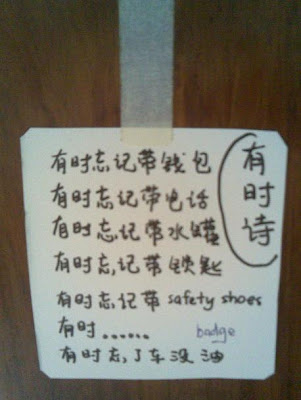 有时诗
有时忘记带钱包
有时忘记带电话
有时忘记带水罐
有时忘记带锁匙
有时忘记带 safety shoes
有时...... badge
有时忘了车没油